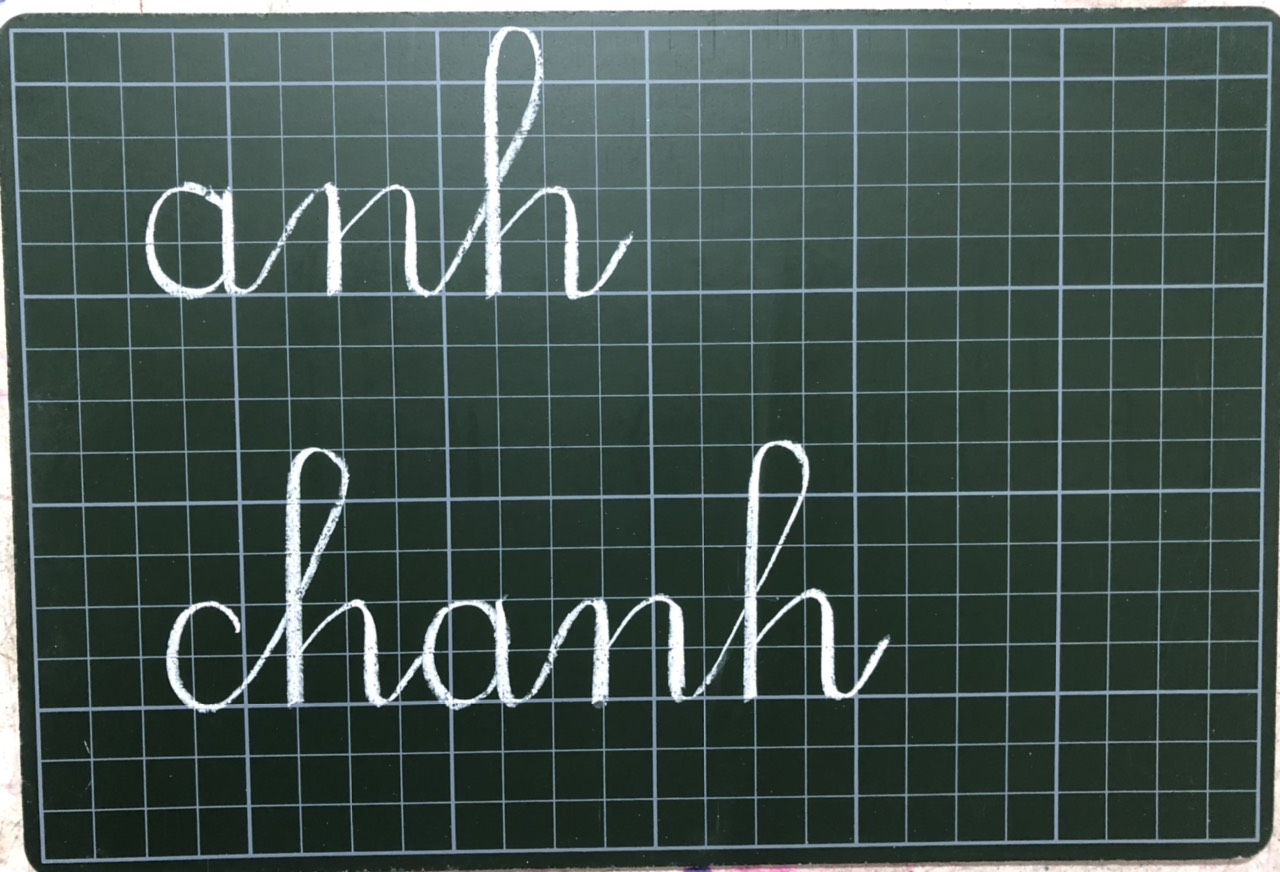 anh
chanh